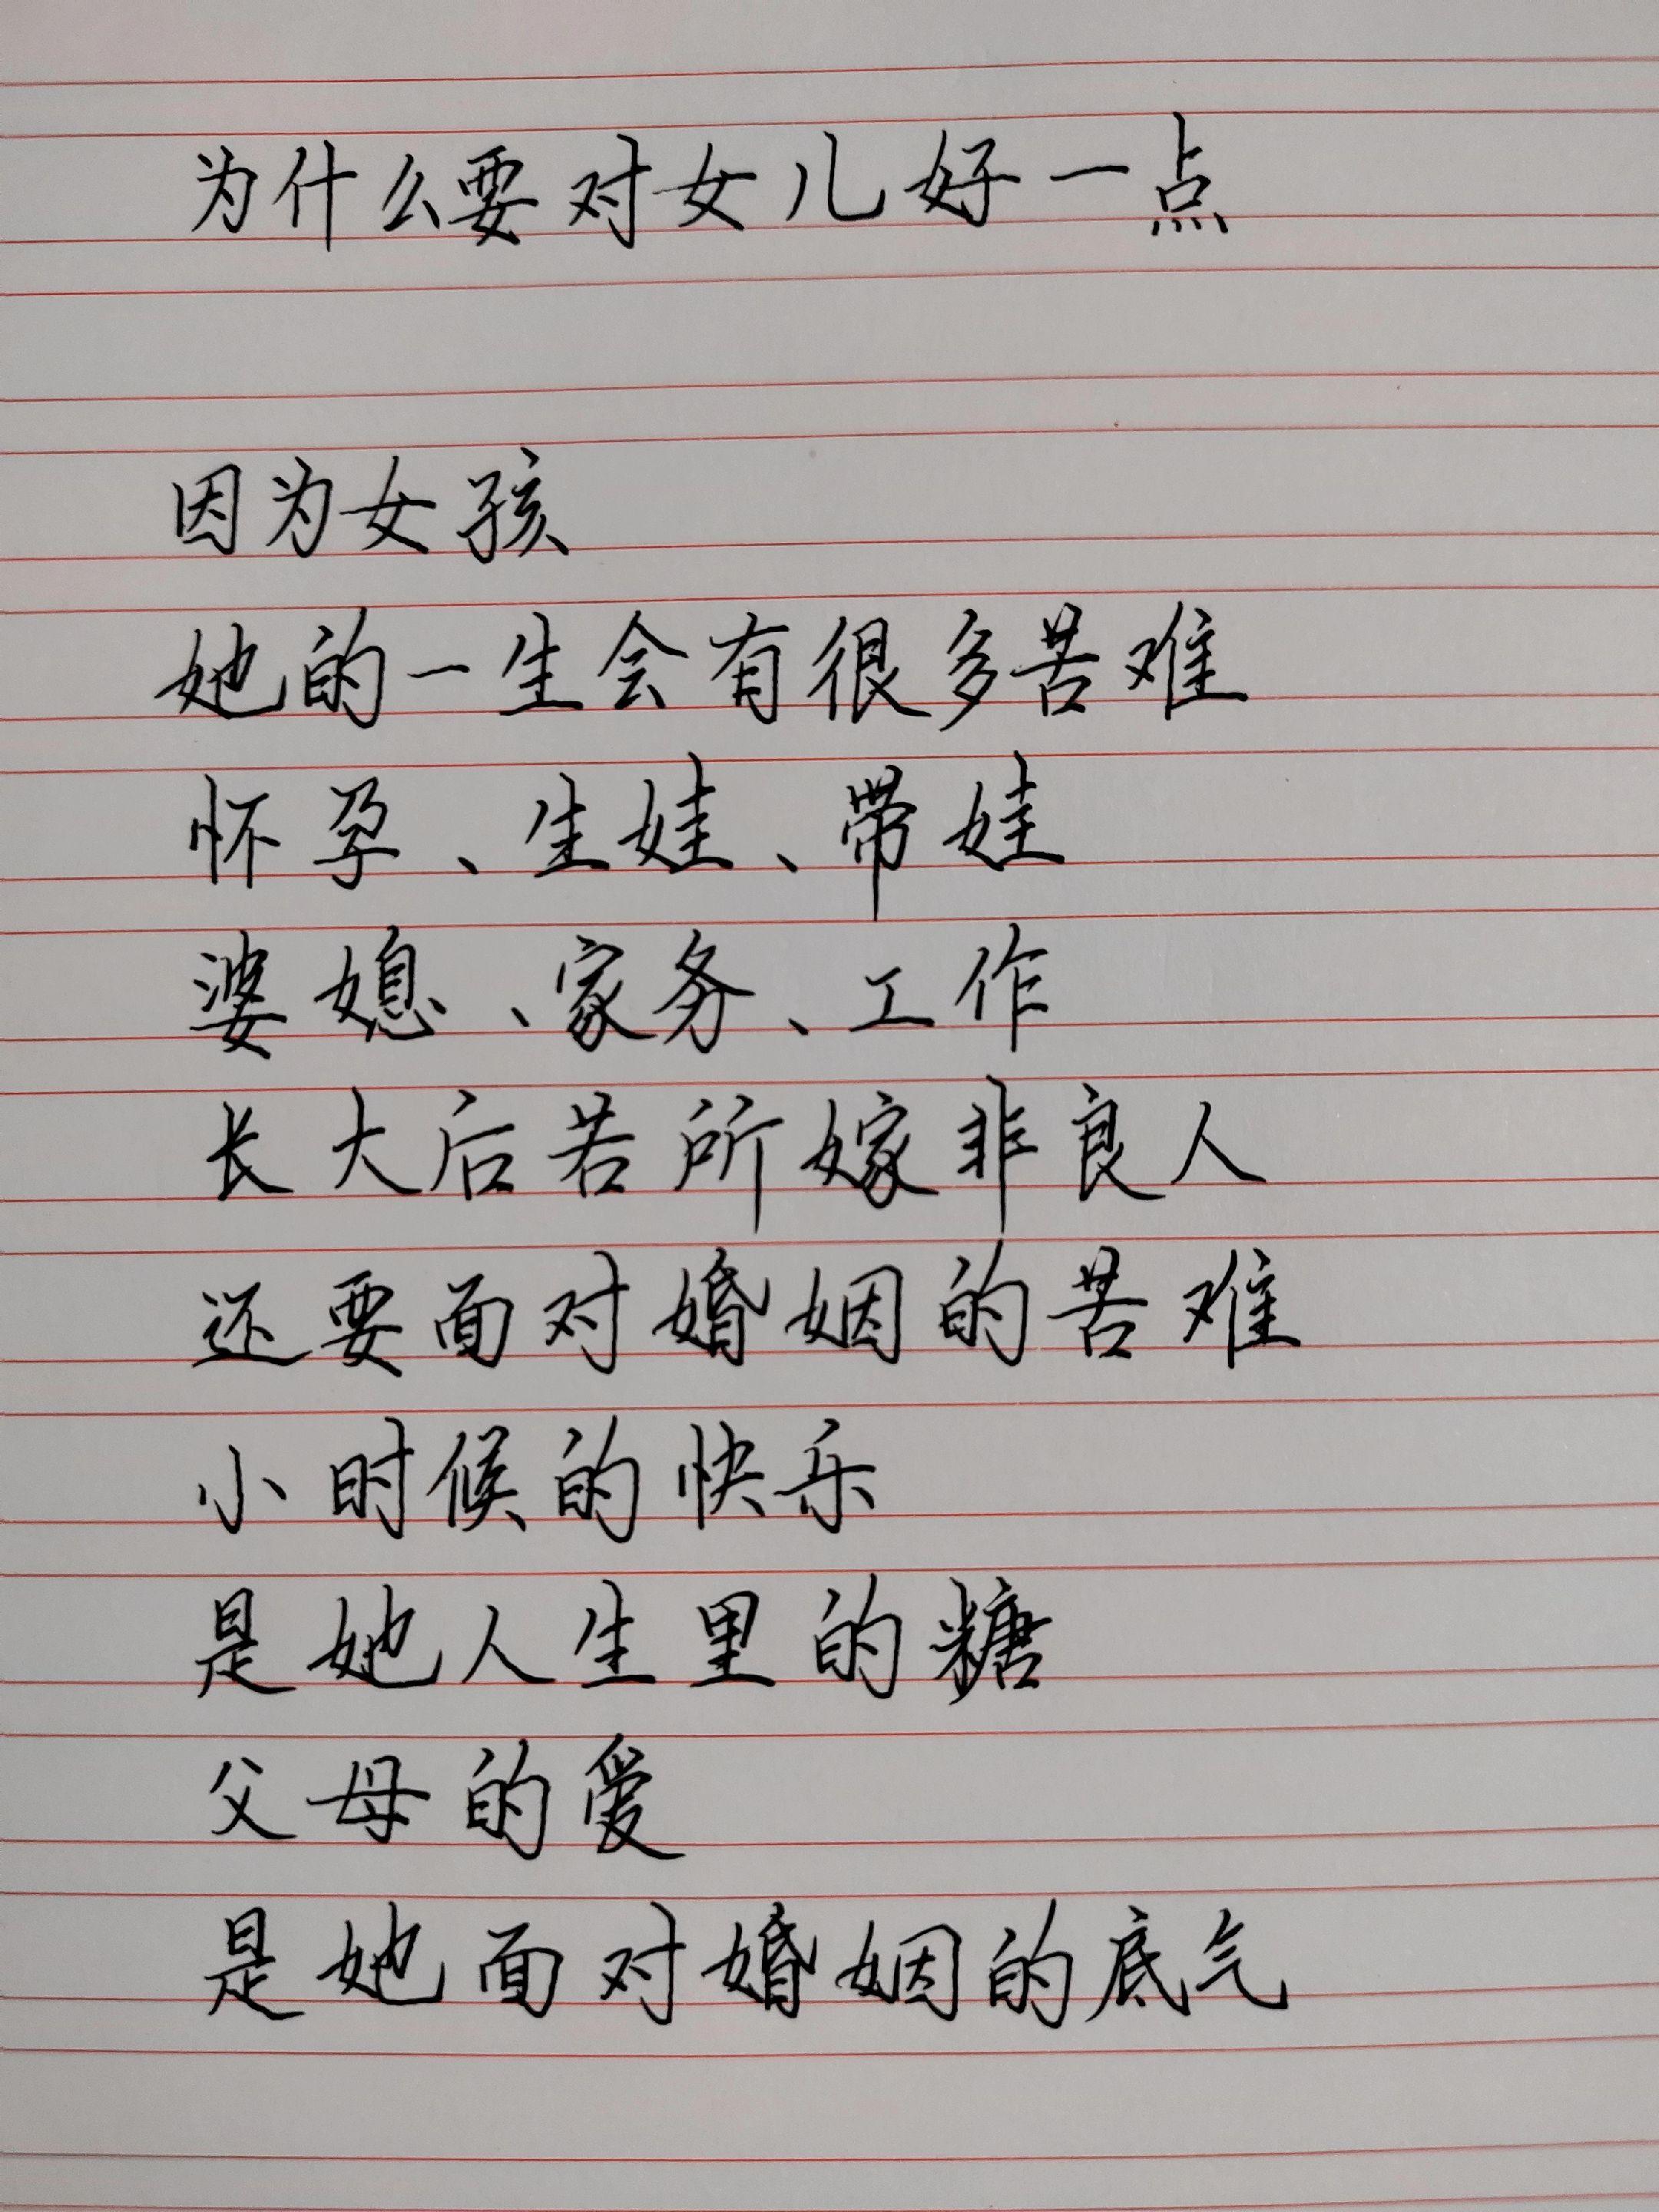 为什么要对女儿好一点
因为女孩
她的一生会有很多苦难
怀孕、生娃、带娃
婆媳、家务、工作
长大后若所嫁非良人
还要面对婚姻的苦难
小时候的快乐
是她人生里的糖
父母的爱
是她面对婚姻的底气